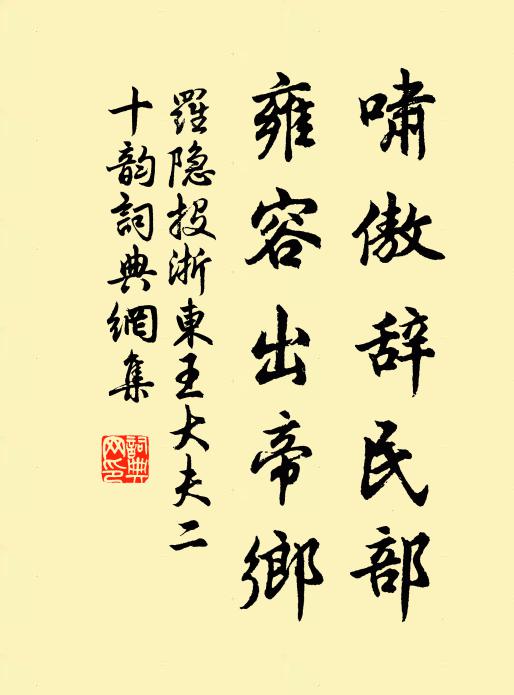 啸傲辞民部
雍容出帝鄉
羅隐投浙東王大夫二
十韵詞典網集
詞典
网印